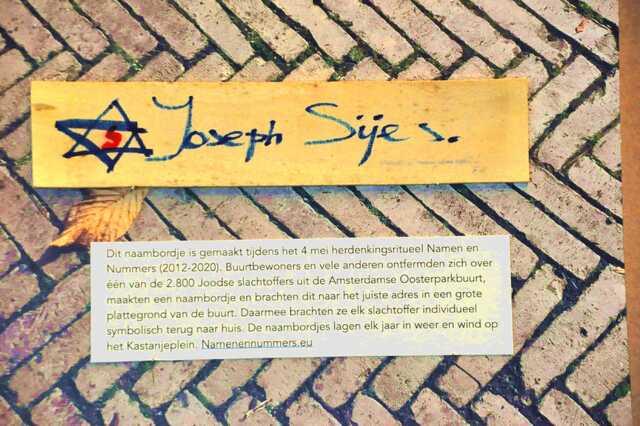 S Joseph Sijes.
Dit naambordje is gemaakt tijdens het 4 mei herdenkingsritueel Namen en
Nummers (2012-2020). Buurtbewoners en vele anderen ontfermden zich over
één van de 2.800 Joodse slachtoffers uit de Amsterdamse Oosterparkbuurt,
maakten een naambordje en brachten dit naar het juiste adres in een grote
plattegrond van de buurt. Daarmee brachten ze elk slachtoffer individueel
symbolisch terug naar huis. De naambordjes lagen elk jaar in weer en wind op
het Kastanjeplein. Namenennummers.eu